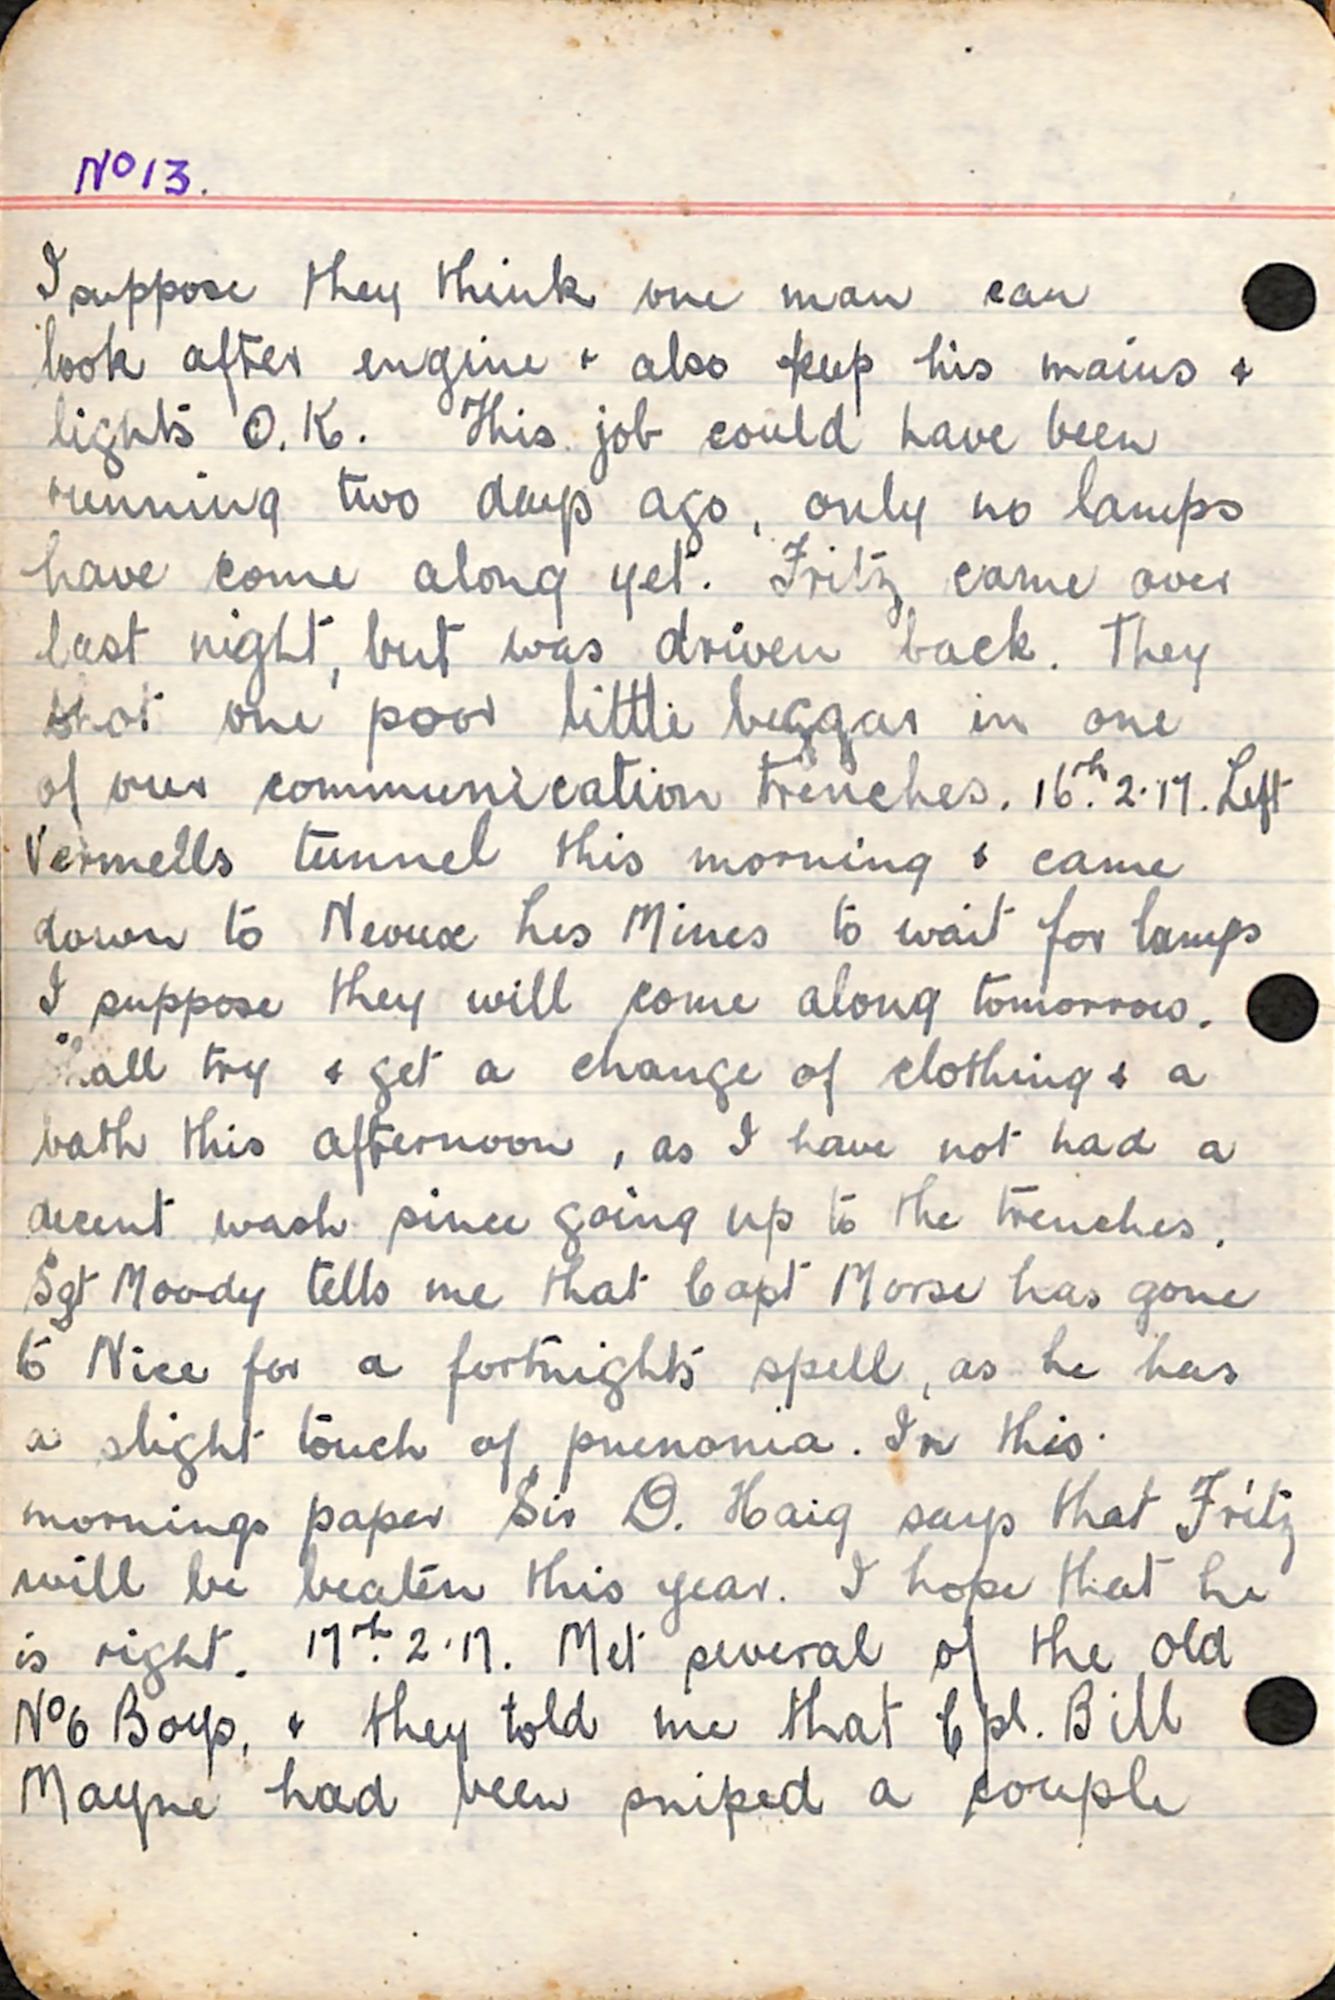 No 13.
I suppose they think one man can
look after engine & also keep his mains &
lights O.K. This job could have been
running two days ago, only no lamps
have come along yet. Fritz came over
last night, but was driven back. They
shot one poor little beggar in one
of our communication trenches. 16th. 2.17. Left
Vermells tunnel this morning & came
down to Neoux Les Mines to wait for lamps
I suppose they will come along tomorrow.
Shall try & get a change of clothing & a
bath this afternoon, as I have not had a
decent wash since going up to the trenches.
Sgt Moody tells me that Capt Morse has gone
to Nice for a fortnights spell, as he has
a slight touch of pnenonia. In this
mornings paper Sir D. Haig says that Fritz
will be beaten this year. I hope that he
is right. 17th. 2.17. Met several of the old
No 6 Boys, & they told me that Cpl. Bill
Mayne had been sniped a couple